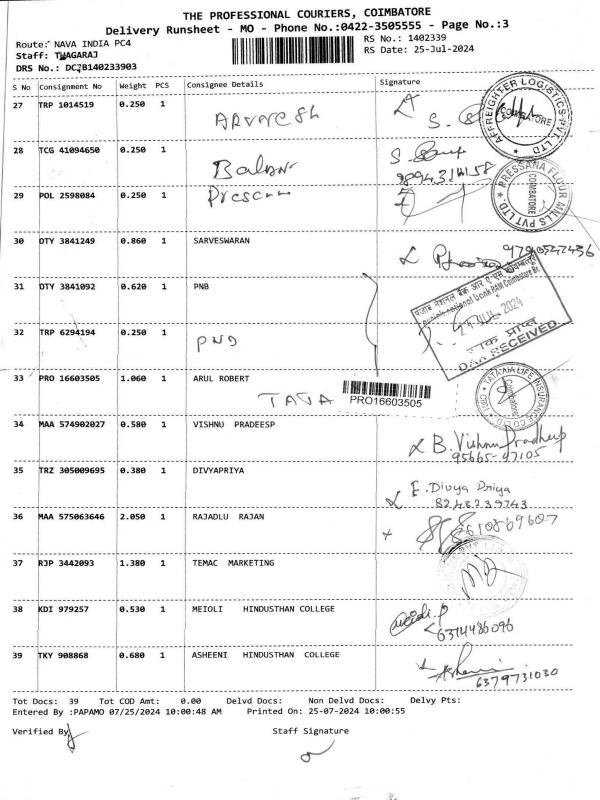 THE PROFESSIONAL COURIERS, COIMBATORE
Delivery Runsheet - MO - Phone No.:0422-3505555 - Page No.:3
Route: NAVA INDIA PC4
RS No.: 1402339
Staff: THAGARAJ
RS Date: 25-Jul-2024
DRS No.: DC2B140233903
S No Consignment No Weight PCS Consignee Details Signature
27 TRP 1014519 0.250 1
AFFREIGHTER LOGISTICS PVT. LTD
COIMBATORE
28 TCG 41094650 0.250 1 Balan
29 POL 2598084 0.250 1
PRESSANA FLOUR MILLS PVT LTD
COIMBATORE
30 DTY 3841249 0.860 1 SARVESWARAN
31 DTY 3841092 0.620 1 PNB
पंजाब नेशनल बैंक
punjab national bank RAM Coimbatore
JUL 2024
डाक प्राप्त
DAK RECEIVED
32 TRP 6294194 0.250 1 PNB
33 PRO 16603505 1.060 1 ARUL ROBERT
TATA
PRO16603505
TATA AIA LIFE INSURANCE CO LTD
Coimbatore
34 MAA 574902027 0.580 1 VISHNU PRADEESP
B. Vishnu Pradheep
95665-47105
35 TRZ 305009695 0.380 1 DIVYAPRIYA
E. Divya Priya
8248239743
36 MAA 575063646 2.050 1 RAJADLU RAJAN
8610869607
37 RJP 3442093 1.380 1 TEMAC MARKETING
38 KDI 979257 0.530 1 MEIOLI HINDUSTHAN COLLEGE
6374486096
39 TKY 908868 0.680 1 ASHEENI HINDUSTHAN COLLEGE
6379731030
Tot Docs: 39 Tot COD Amt: 0.00 Delvd Docs: Non Delvd Docs: Delvy Pts:
Entered By :PAPAMO 07/25/2024 10:00:48 AM Printed On: 25-07-2024 10:00:55
Verified By
Staff Signature